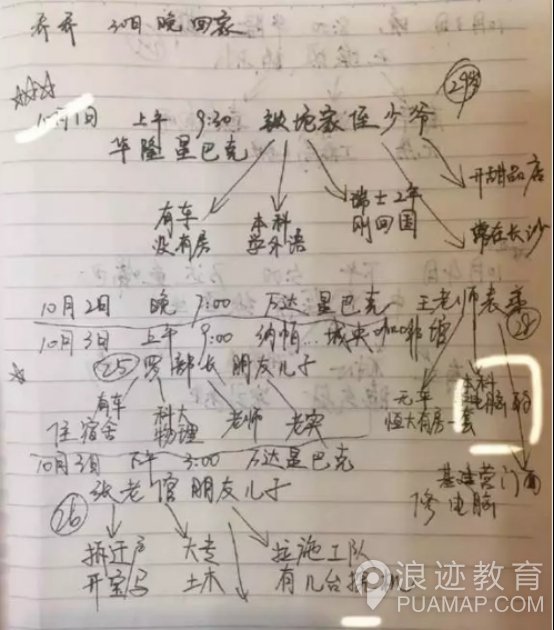 乔乔 30日晚回家
10月1日 上午 9:30 铁坨家侄少爷 29岁
华隆星巴克
有车
没有房
本科
学外语
瑞士2年
刚回国
常在长沙
开甜品店
10月2日 晚 7:00 万达星巴克 王老师表弟 28
无车
恒大有房一套
本科
电脑
基建营门面
修电脑
10月3日 上午 9:00 纳帕…城央咖啡馆
25 罗部长朋友儿子
有车
住宿舍
科大
物理
老师
老实
10月3日 下午 3:00 万达星巴克
26 张老馆朋友儿子
拆迁户
开宝马
大专
土木
拉施工队
有几台挖机
浪迹教育
PUAMAP.COM